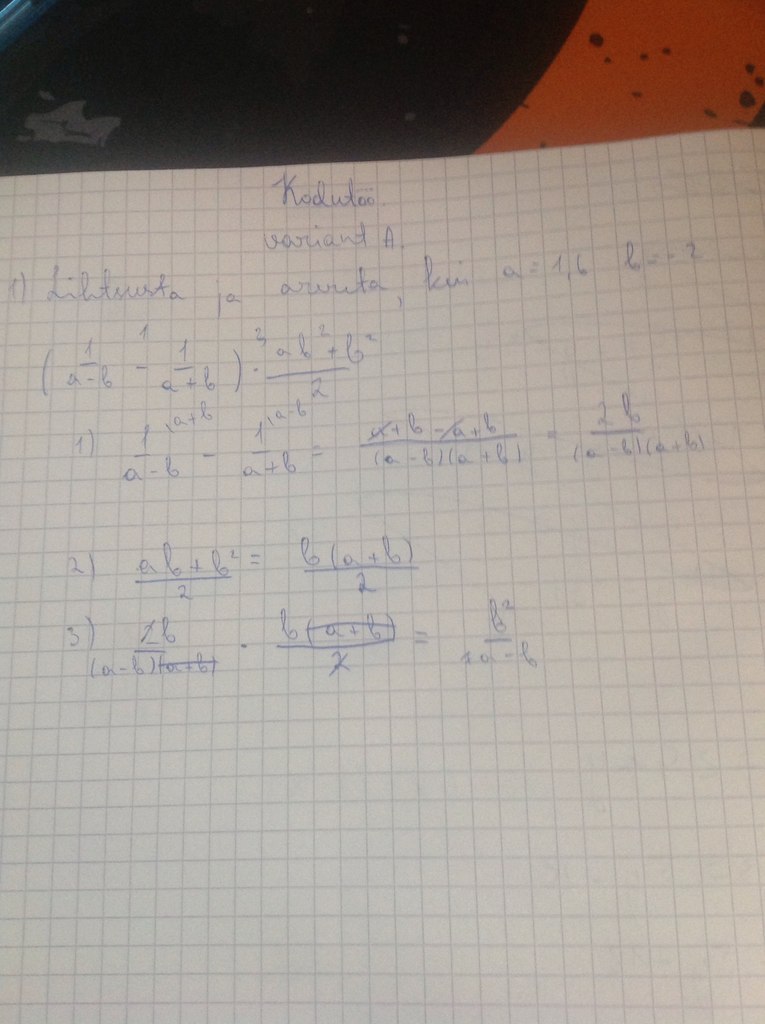 Kodutöö.
variant A.
1) Lihtsusta ja arvuta, kui a = 1,6 b = -2
(1/(a-b) 1 - 1/(a+b)) 3 · (ab 2 + b²)/2
1) 1/(a-b) ⁽ᵃ⁺ᵇ - 1/(a+b) ⁽ᵃ⁻ᵇ = (a+b-a+b)/((a-b)(a+b)) = 2b/((a-b)(a+b))
2) (ab+b²)/2 = b(a+b)/2
3) 2b/((a-b)(a+b)) · b(a+b)/2 = b²/(a-b)